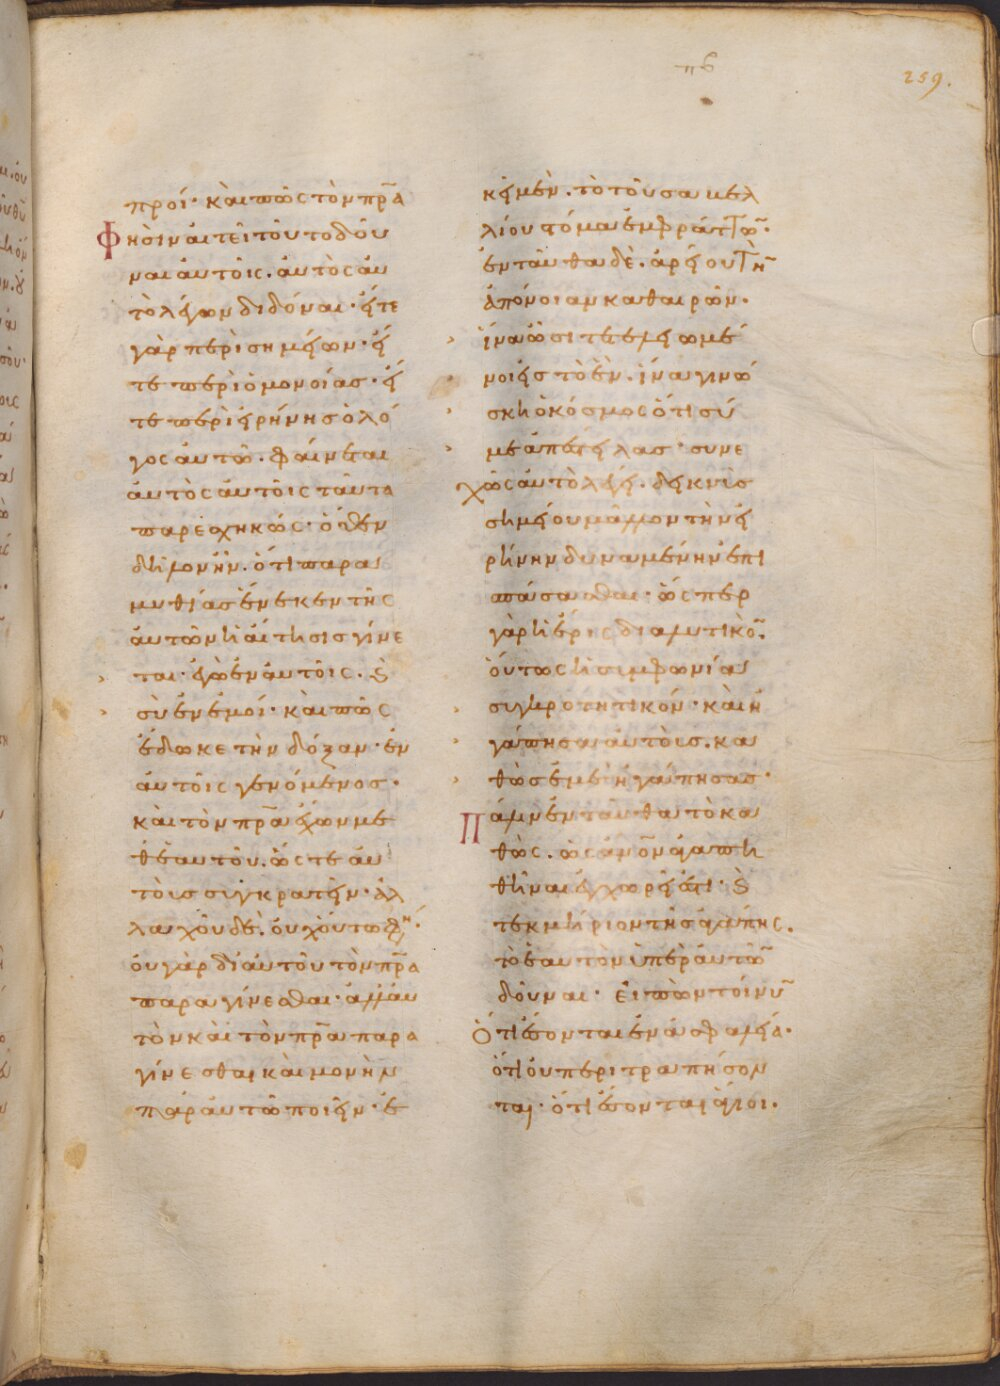 πβ
259.
προί· καὶ πῶς τὸν πρ̅α
Φησὶν αἰτεῖ τοῦτο δοῦ
ναι αὐτοῖς. αὐτὸς αὐ
τὸ λέγων διδόναι· ἔτε
γὰρ περὶ σημείων· ἔ
τε περὶ ὁμονοίας· ἔ
τε περὶ εἰρήνης ὁ λό
γος αὐτῶ. φαίνεται
αὐτὸς αὐτοῖς ταῦτα
παρεσχηκώς· ὅθεν
δῆλον ἦν. ὅτι παρα
μυθίας ἕνεκεν τῆς
αὐτῶν ἡ αἴτησις γίνε
ται· ἐγὼ ἐν αὐτοῖς. ϗ
σὺ ἐν ἐμοί· καὶ πῶς
ἔδωκε τὴν δόξαν· ἐν
αὐτοῖς γενόμενος·
καὶ τὸν πρ̅α ἔχων με
θ' ἑαυτοῦ. ὥστε αὐ
τοὺς συγκρατεῖν· ἀλ
λαχοῦ δὲ. οὐχ οὕτω φη·
οὐ γὰρ δι' αὐτοῦ τὸν πρ̅α
παραγίνεσθαι· ἀλλ' αὐ
τὸν καὶ τὸν πρ̅α παρα
γίνεσθαι καὶ μονὴν
παρ' αὐτῶ ποιεῖν· ἐ
κεῖ μὲν. τὸ τοῦ σαμελ
λίου στόμα ἐμφράττω̅·
ἐνταῦθα δὲ. ἀρείου τὴ̅
ἀπόνοιαν καθαιρῶν·
ἵνα ὦσι τετελειωμέ
νοι εἰς τὸ ἕν. ἵνα γινώ
σκη ὁ κόσμος ὅτι σύ
με ἀπέστειλας· συνε
χῶς αὐτὸ λέγει. δεικνὺς
σημείου μᾶλλον τὴν εἰ
ρήνην δυναμένην ἐπι
σπάσασθαι· ὥσπερ
γὰρ ἡ ἔρις διαλυτικὸ̅·
οὕτως ἡ συμφωνία
συγκροτητικόν· καὶ ἠ
γάπησα αὐτοὺς. κα
θὼς ἐμὲ ἠγάπησας·
Πάλιν ἐνταῦθα τὸ κα
θὼς. ὡς ἄν̅ον ἀγαπη
θῆναι ἐγχωρεῖ ἐστι· ϗ
τεκμήριον τῆς ἀγάπης.
τὸ ἑαυτὸν ὑπὲρ αὐτῶ̅
δοῦναι· εἰπὼν τοίνυ̅
Ὅτι ἔσονται ἐν ἀσφαλεία·
ὅτι οὐ περιτραπήσον
ται· ὅτι ἔσονται ἅγιοι.